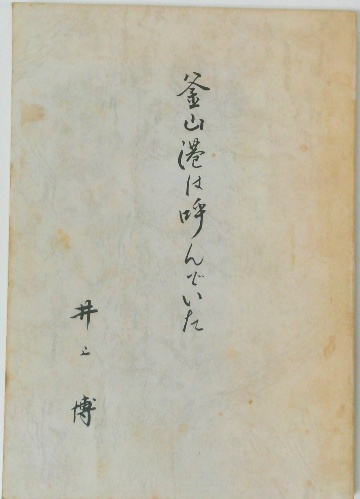 釜山港は呼んでいた
井上博